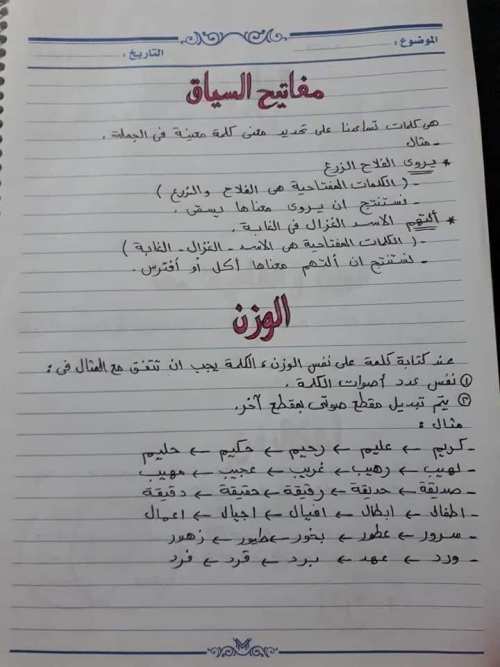 الموضوع :
التاريخ :
مفاتيح السياق
هى كلمات تساعدنا على تحديد معنى كلمة معينة فى الجملة .
- مثال
* يروى الفلاح الزرع
- ( الكلمات المفتاحية هى الفلاح والزرع )
- نستنتج ان يروى معناها يسقى .
* ألتهم الاسد الغزال فى الغابة .
- ( الكلمات المفتاحية هى الاسد - الغزال - الغابة )
- نستنتج ان ألتهم معناها أكل أو أفترس .
الوزن
عند كتابة كلمة على نفس الوزن، الكلمة يجب ان تتفق مع المثال فى :
① نفس عدد أصوات الكلمة .
② يتم تبديل مقطع صوتى بمقطع آخر.
مثال :
- كريم ← عليم ← رحيم ← حكيم ← حليم
- لهيب ← رهيب ← غريب ← عجيب ← مهيب
- صديقة ← حديقة ← رقيقة ← حقيقة ← دقيقة
- اطفال ← ابطال ← افيال ← اجيال ← اعمال
- سرور ← عطور ← بخور ← طيور ← زهور
- ورد ← عهد ← برد ← قرد ← فرد